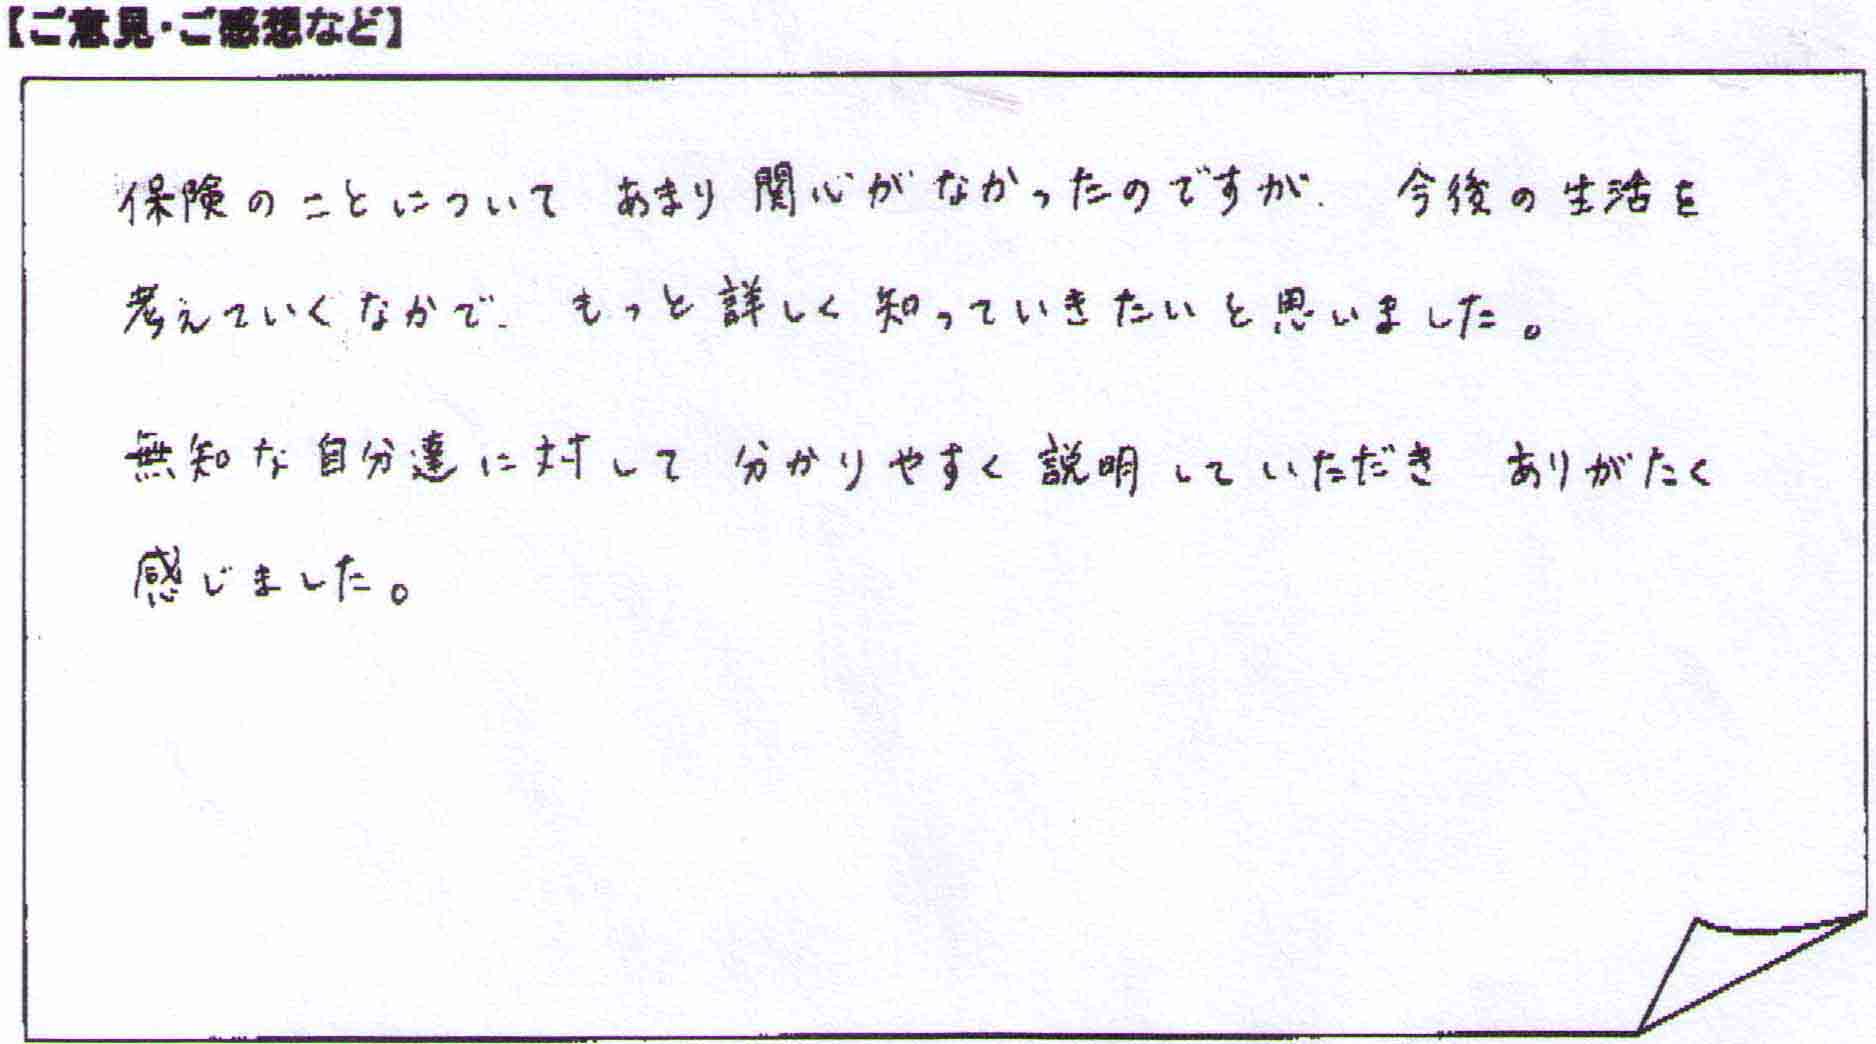 【ご意見・ご感想など】
保険のことについて あまり関心がなかったのですが、 今後の生活を
考えていくなかで、もっと詳しく知っていきたいと思いました。
無知な自分達に対して 分かりやすく説明していただき ありがたく
感じました。